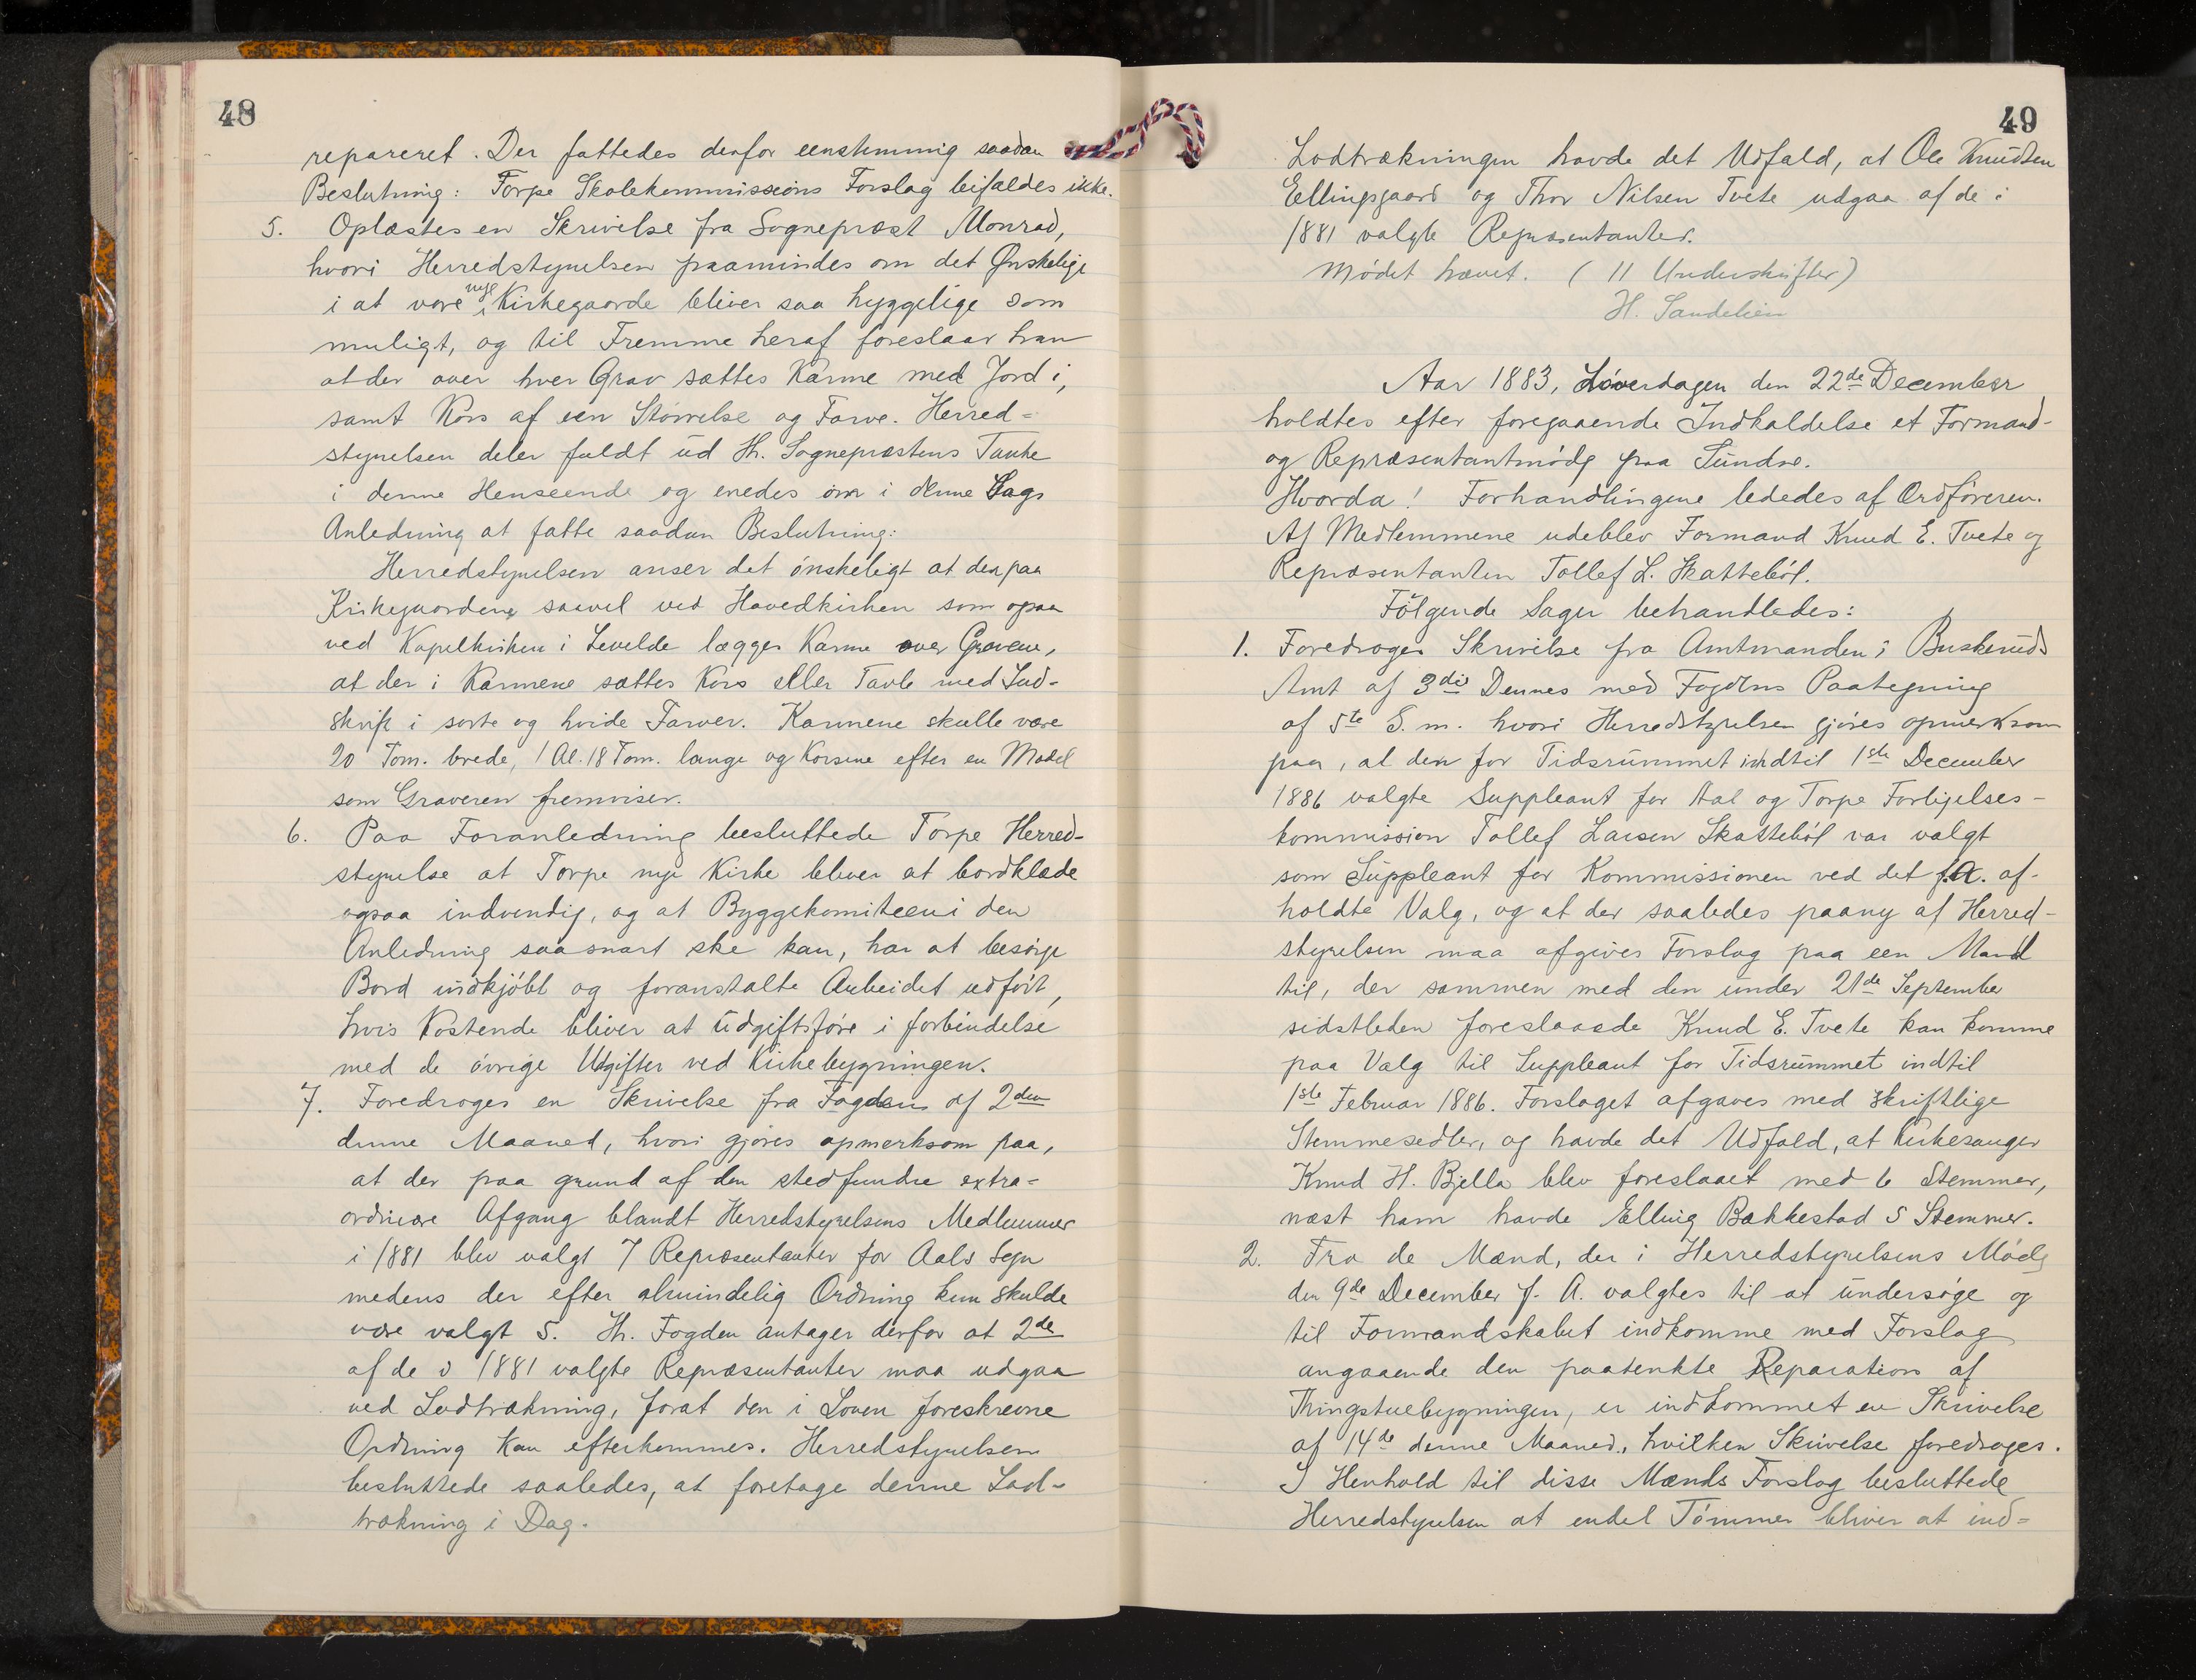 48
repareret. Der fattedes derfor eenstemmig saadan
Beslutning: Torpe Skolekommissions Forslag bifaldes ikke.
5. Oplæstes en Skrivelse fra Sogneprest Monrad,
hvori Herredstyrelsen paamindes om det Ønskelige
i at vore nye Kirkegaarde bliver saa hyggelige som
muligt, og til Fremme heraf foreslaar han
at der over hver Grav sættes Karme med Jord i,
samt Kors af een Størrelse og Farve. Herred=
styrelsen deler fuldt ud Hr. Sogneprestens Tanke
i denne Henseende og enedes om i denne Sags
Anledning at fatte saadan Beslutning:
Herredstyrelsen anser det ønskeligt at der paa
Kirkegaardene saavel ved Hovedkirken som opaa
ved Kapelkirken i Levelde lægges Karme over Gravene,
at der i Karmene sættes Kors eller Tavle med Ind-
skrift i sorte og hvide Farver. Karmene skulle være
20 Tom. brede, 1 Al. 18 Tom. lange og Korsene efter en Model
som Graveren fremviser.
6. Paa Foranledning besluttede Torpe Herred-
styrelse at Torpe nye Kirke bliver at bordklæde
ogsaa indvendig, og at Byggekomiteen i den
Anledning saasnart ske kan, har at besørge
Bord indkjøbt og foranstalte Arbeidet udført,
hvis Kostende bliver at udgiftsføre i forbindelse
med de øvrige Udgifter ved Kirkebygningen.
7. Foredroges en Skrivelse fra Fogden af 2den
denne Maaned, hvori gjøres opmerksom paa,
at der paa grund af den stedfundne extra=
ordinære Afgang blandt Herredstyrelsens Medlemmer
i 1881 blev valgt 7 Repræsentanter for Aals Sogn
medens der efter almindelig Ordning kun skulde
være valgt 5. Hr. Fogden antager derfor at 2de
af de i 1881 valgte Repræsentanter maa udgaa
ved Lodtrækning, forat den i Loven foreskrevne
Ordning kan efterkommes. Herredstyrelsen
besluttede saaledes, at foretage denne Lod-
trækning i Dag.
49
Lodtrækningen havde det Udfald, at Ole Knudsen
Ellingsgaard og Thor Nilsen Tvete udgaa af de i
1881 valgte Repræsentanter.
Mødet hævet. ( 11 Underskrifter)
H. Sandelien
Aar 1883, Løverdagen den 22de December
holdtes efter foregaaende Indkaldelse et Formand-
og Repræsentantmøde paa Sundre.
Hvorda! Forhandlingene lededes af Ordføreren.
Af Medlemmene udeblev Formand Knud E. Tvete og
Repræsentanten Tollef L. Skattebøl.
Følgende Sager behandledes:
1. Foredroges Skrivelse fra Amtmanden i Buskeruds
Amt af 3die Dennes med Fogdens Paategning
af 5te S. m. hvori Herredstyrelsen gjøres opmerksom
paa, at den for Tidsrummet indtil 1ste December
1886 valgte Suppleant for Aal og Torpe Forligelses-
kommission Tollef Larsen Skattebøl var valgt
som Suppleant for Kommissionen ved det f.A. af-
holdte Valg, og at der saaledes paany af Herred-
styrelsen maa afgives Forslag paa een Mand
til, der sammen med den under 21de September
sidstleden foreslaaede Knud E. Tvete kan komme
paa Valg til Suppleant for Tidsrummet indtil
1ste Februar 1886. Forslaget afgaves med skriftlige
Stemmesedler, og havde det Udfald, at Kirkesanger
Knud H. Bjella blev foreslaaet med 6 Stemmer,
næst ham havde Elling Bakkestad 5 Stemmer.
2. Fra de Mænd, der i Herredstyrelsens Møde
den 9de December f. A. valgtes til at undersøge og
til Formandskabet indkomme med Forslag
angaaende den paatenkte Reparation af
Thingstuebygningen, er indkommet en Skrivelse
af 14de denne Maaned., hvilken Skrivelse foredroges.
I Henhold til disse Mænds Forslag besluttede
Herredstyrelsen at endel Tømmer bliver at ind=